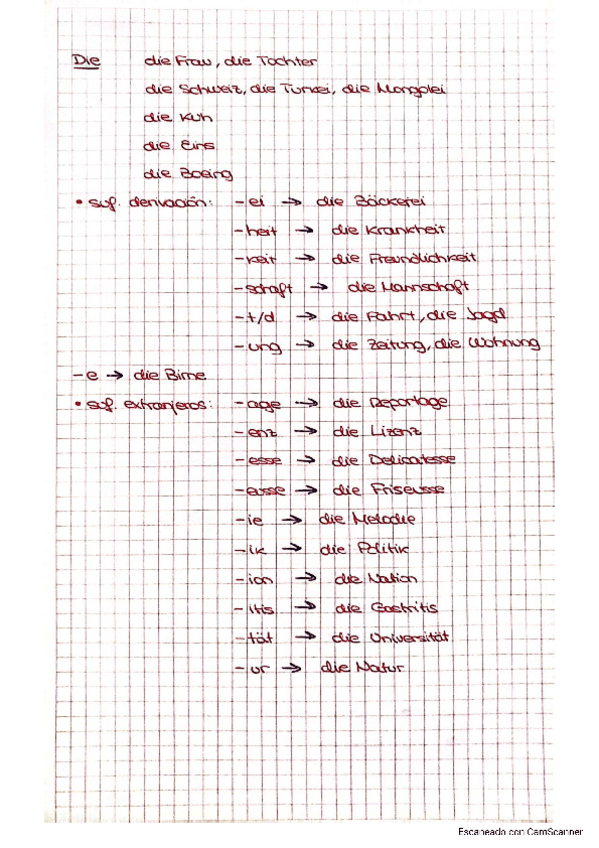 Die die Frau, die Tochter
die Schweiz, die Turkei, die Mongolei
die Kuh
die Eins
die Boeing
• suf. derivación: -ei → die Bäckerei
-heit → die Krankheit
-keit → die Freundlichkeit
-schaft → die Mannschaft
-t/d → die Fahrt, die Jagd
-ung → die Zeitung, die Wohnung
-e → die Birne
• suf. extranjeros: -age → die Reportage
-enz → die Lizenz
-esse → die Delicatesse
-eusse → die Friseusse
-ie → die Melodie
-ik → die Politik
-ion → die Nation
-itis → die Gastritis
-tät → die Universität
-ur → die Natur
Escaneado con CamScanner